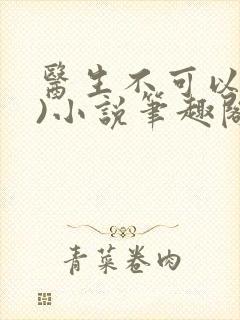 醫生不可以
)小說筆趣閣
青菜卷肉